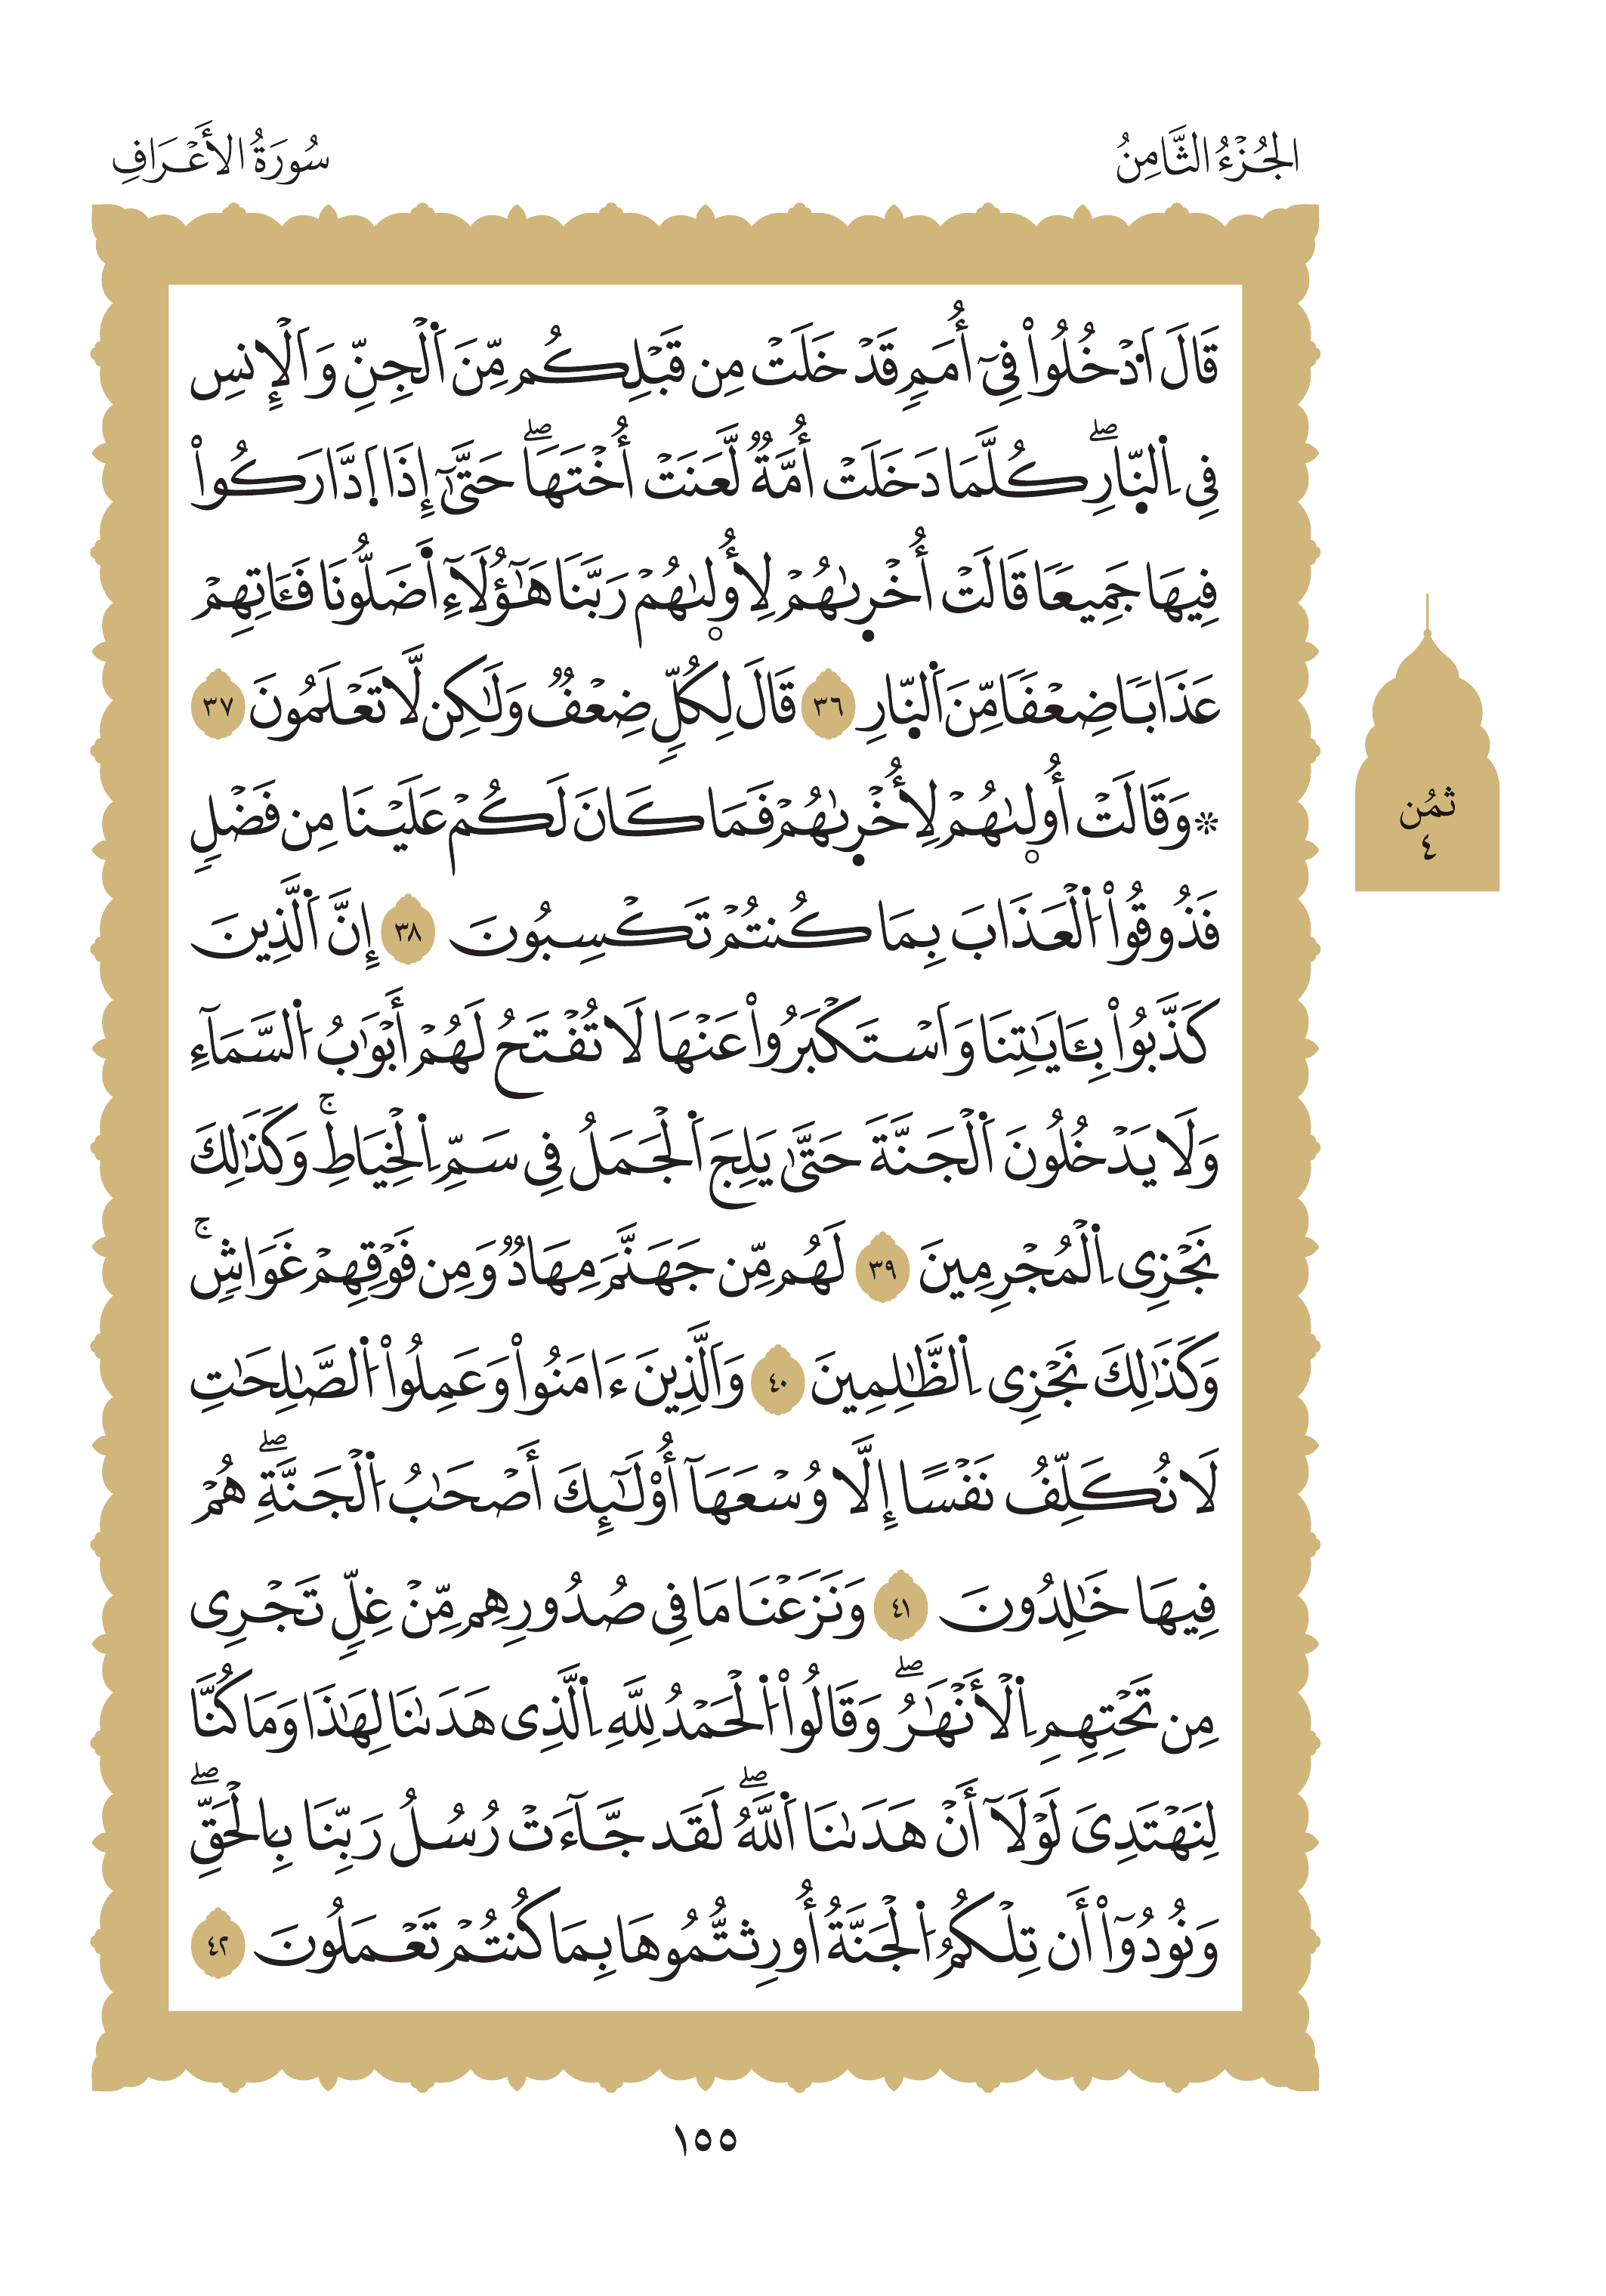 الجُزْءُ الثَّامِنُ
سُورَةُ الأَعْرَافِ
قَالَ اَ۟دْخُلُواْ فِيٓ أُمَمٖ قَدْ خَلَتْ مِن قَبْلِكُم مِّنَ اَ۬لْجِنِّ وَالْإِنسِ
فِي اِ۬لنّ۪ارِۖ كُلَّمَا دَخَلَتْ أُمَّةٞ لَّعَنَتْ أُخْتَهَاۖ حَتَّىٰٓ إِذَا اَ۪دَّارَكُواْ
فِيهَا جَمِيعٗا قَالَتْ أُخْر۪ىٰهُمْ لِأُول۪ىٰهُمْ رَبَّنَا هَٰٓؤُلَآءِ اَ۬ضَلُّونَا فَـَٔاتِهِمْ
عَذَابٗا ضِعْفٗا مِّنَ اَ۬لنّ۪ارِ ٣٦ قَالَ لِكُلّٖ ضِعْفٞ وَلَٰكِن لَّا تَعْلَمُونَ ٣٧
۞وَقَالَتْ أُول۪ىٰهُمْ لِأُخْر۪ىٰهُمْ فَمَا كَانَ لَكُمْ عَلَيْنَا مِن فَضْلٖ
فَذُوقُواْ اُ۬لْعَذَابَ بِمَا كُنتُمْ تَكْسِبُونَ ٣٨ إِنَّ اَ۬لَّذِينَ
كَذَّبُواْ بِـَٔايَٰتِنَا وَاسْتَكْبَرُواْ عَنْهَا لَا تُفْتَحُ لَهُمْ أَبْوَٰبُ اُ۬لسَّمَآءِ
وَلَا يَدْخُلُونَ اَ۬لْجَنَّةَ حَتَّىٰ يَلِجَ اَ۬لْجَمَلُ فِي سَمِّ اِ۬لْخِيَاطِۚ وَكَذَٰلِكَ
نَجْزِي اِ۬لْمُجْرِمِينَ ٣٩ لَهُم مِّن جَهَنَّمَ مِهَادٞ وَمِن فَوْقِهِمْ غَوَاشٖۚ
وَكَذَٰلِكَ نَجْزِي اِ۬لظَّٰلِمِينَ ٤٠ وَالَّذِينَ ءَامَنُواْ وَعَمِلُواْ اُ۬لصَّٰلِحَٰتِ
لَا نُكَلِّفُ نَفْسًا إِلَّا وُسْعَهَآ أُوْلَٰٓئِكَ أَصْحَٰبُ اُ۬لْجَنَّةِۖ هُمْ
فِيهَا خَٰلِدُونَ ٤١ وَنَزَعْنَا مَا فِي صُدُورِهِم مِّنْ غِلّٖ تَجْرِي
مِن تَحْتِهِمِ اِ۬لْأَنْهَٰرُۖ وَقَالُواْ اُ۬لْحَمْدُ لِلَّهِ اِ۬لَّذِي هَدَىٰنَا لِهَٰذَا وَمَا كُنَّا
لِنَهْتَدِيَ لَوْلَآ أَنْ هَدَىٰنَا اَ۬للَّهُۖ لَقَد جَّآءَتْ رُسُلُ رَبِّنَا بِالْحَقِّۖ
وَنُودُوٓاْ أَن تِلْكُمُ اُ۬لْجَنَّةُ أُورِثتُّمُوهَا بِمَا كُنتُمْ تَعْمَلُونَ ٤٢
ثمُن
٤
١٥٥